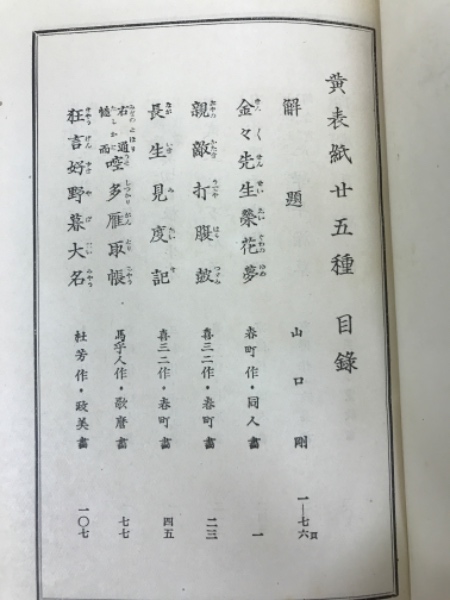 黄表紙廿五種 目録
解題 山口剛 一―七六頁
金々先生榮花夢 春町作・同人畫 一
親敵打腹鼓 喜三二作・春町畫 二三
長生見度記 喜三二作・春町畫 四五
右通慥而啌多雁取帳 馬乎人作・歌麿畫 七七
狂言好野暮大名 杜芳作・政美畫 一〇七